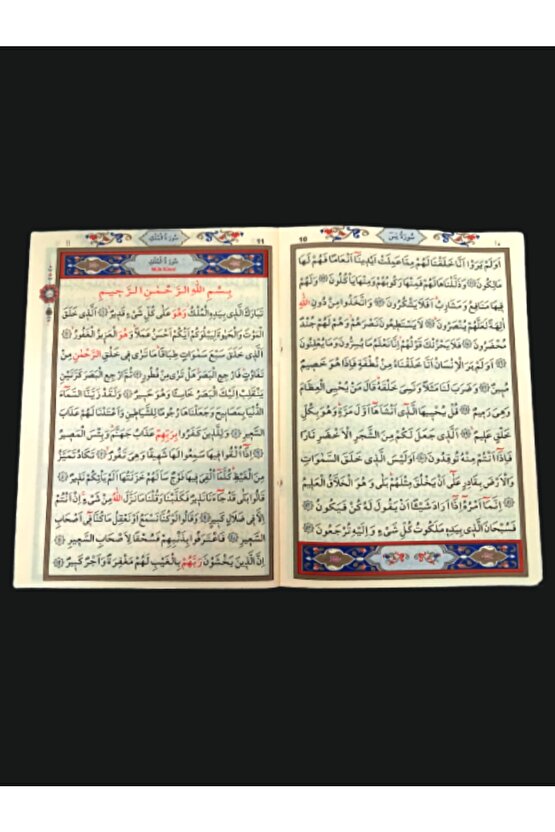 ١٠
10
سُورَةُ يٰسٓ
اَوَلَمْ يَرَوْا اَنَّا خَلَقْنَا لَهُمْ مِمَّا عَمِلَتْ اَيْدِينَٓا اَنْعَامًا فَهُمْ لَهَا
مَالِكُونَ ۝ وَذَلَّلْنَاهَا لَهُمْ فَمِنْهَا رَكُوبُهُمْ وَمِنْهَا يَأْكُلُونَ ۝ وَلَهُمْ
فِيهَا مَنَافِعُ وَمَشَارِبُ اَفَلَا يَشْكُرُونَ ۝ وَاتَّخَذُوا مِنْ دُونِ اللّٰهِ
اٰلِهَةً لَعَلَّهُمْ يُنْصَرُونَ ۝ لَا يَسْتَطِيعُونَ نَصْرَهُمْ وَهُمْ لَهُمْ جُنْدٌ
مُحْضَرُونَ ۝ فَلَا يَحْزُنْكَ قَوْلُهُمْ اِنَّا نَعْلَمُ مَا يُسِرُّونَ وَمَا يُعْلِنُونَ
۝ اَوَلَمْ يَرَ الْاِنْسَانُ اَنَّا خَلَقْنَاهُ مِنْ نُطْفَةٍ فَاِذَا هُوَ خَصِيمٌ
مُبِينٌ ۝ وَضَرَبَ لَنَا مَثَلًا وَنَسِيَ خَلْقَهُ قَالَ مَنْ يُحْيِي الْعِظَامَ
وَهِيَ رَمِيمٌ ۝ قُلْ يُحْيِيهَا الَّذِٓي اَنْشَاَهَٓا اَوَّلَ مَرَّةٍ وَهُوَ بِكُلِّ
خَلْقٍ عَلِيمٌ ۝ اَلَّذِي جَعَلَ لَكُمْ مِنَ الشَّجَرِ الْاَخْضَرِ نَارًا
فَاِذَٓا اَنْتُمْ مِنْهُ تُوقِدُونَ ۝ اَوَلَيْسَ الَّذِي خَلَقَ السَّمٰوَاتِ
وَالْاَرْضَ بِقَادِرٍ عَلٰٓى اَنْ يَخْلُقَ مِثْلَهُمْ بَلٰى وَهُوَ الْخَلَّاقُ الْعَلِيمُ
۝ اِنَّمَٓا اَمْرُهُٓ اِذَٓا اَرَادَ شَيْـًٔا اَنْ يَقُولَ لَهُ كُنْ فَيَكُونُ ۝
فَسُبْحَانَ الَّذِي بِيَدِهِ مَلَكُوتُ كُلِّ شَيْءٍ وَاِلَيْهِ تُرْجَعُونَ ۝
11
سُورَةُ الْمُلْكِ
سُورَةُ الْمُلْكِ
بِسْمِ اللّٰهِ الرَّحْمٰنِ الرَّحِيمِ
تَبَارَكَ الَّذِي بِيَدِهِ الْمُلْكُ وَهُوَ عَلٰى كُلِّ شَيْءٍ قَدِيرٌ ۝ اَلَّذِي خَلَقَ
الْمَوْتَ وَالْحَيٰوةَ لِيَبْلُوَكُمْ اَيُّكُمْ اَحْسَنُ عَمَلًا وَهُوَ الْعَزِيزُ الْغَفُورُ ۝
اَلَّذِي خَلَقَ سَبْعَ سَمٰوَاتٍ طِبَاقًا مَا تَرٰى فِي خَلْقِ الرَّحْمٰنِ مِنْ
تَفَاوُتٍ فَارْجِعِ الْبَصَرَ هَلْ تَرٰى مِنْ فُطُورٍ ۝ ثُمَّ ارْجِعِ الْبَصَرَ كَرَّتَيْنِ
يَنْقَلِبْ اِلَيْكَ الْبَصَرُ خَاسِئًا وَهُوَ حَسِيرٌ ۝ وَلَقَدْ زَيَّنَّا السَّمَٓاءَ
الدُّنْيَا بِمَصَابِيحَ وَجَعَلْنَاهَا رُجُومًا لِلشَّيَاطِينِ وَاَعْتَدْنَا لَهُمْ عَذَابَ
السَّعِيرِ ۝ وَلِلَّذِينَ كَفَرُوا بِرَبِّهِمْ عَذَابُ جَهَنَّمَ وَبِئْسَ الْمَصِيرُ
۝ اِذَٓا اُلْقُوا فِيهَا سَمِعُوا لَهَا شَهِيقًا وَهِيَ تَفُورُ ۝ تَكَادُ تَمَيَّزُ
مِنَ الْغَيْظِ كُلَّمَٓا اُلْقِيَ فِيهَا فَوْجٌ سَاَلَهُمْ خَزَنَتُهَٓا اَلَمْ يَأْتِكُمْ نَذِيرٌ ۝
قَالُوا بَلٰى قَدْ جَٓاءَنَا نَذِيرٌ فَكَذَّبْنَا وَقُلْنَا مَا نَزَّلَ اللّٰهُ مِنْ شَيْءٍ اِنْ اَنْتُمْ
اِلَّا فِي ضَلَالٍ كَبِيرٍ ۝ وَقَالُوا لَوْ كُنَّا نَسْمَعُ اَوْ نَعْقِلُ مَا كُنَّا فِٓي اَصْحَابِ
السَّعِيرِ ۝ فَاعْتَرَفُوا بِذَنْبِهِمْ فَسُحْقًا لِاَصْحَابِ السَّعِيرِ ۝
اِنَّ الَّذِينَ يَخْشَوْنَ رَبَّهُمْ بِالْغَيْبِ لَهُمْ مَغْفِرَةٌ وَاَجْرٌ كَبِيرٌ ۝